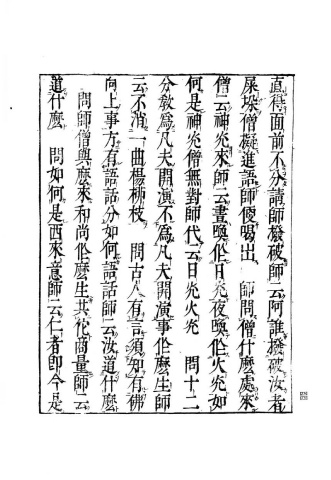 直得面前不分請師撥破師云阿誰撥破汝者
屎垛僧擬進語師便喝出　師問僧什麼處來
僧云神光來師云晝喚作日光夜喚作火光如
何是神光僧無對師代云日光火光　問十二
分教為凡夫開演不為凡夫開演事作麼生師
云不消一曲楊柳枝　問古人有言須知有佛
向上事方有語話分如何語話師云汝道什麼
問師僧與麼來和尚作麼生共花商量師云
道什麼　問如何是西來意師云仁者即今是